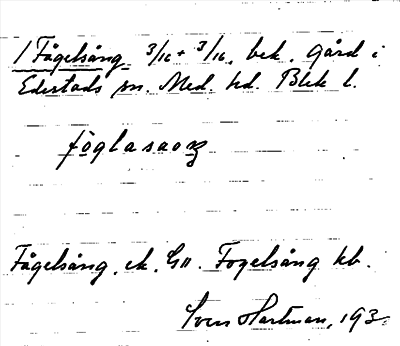 1 Fågelsång 3/16 + 3/16, bek. gård i
Edestads sn. Med. hd. Blek l.
fòglasaoŋ
Fågelsång, ek. G11. Fogelsång kb.
Sven Hartman, 193